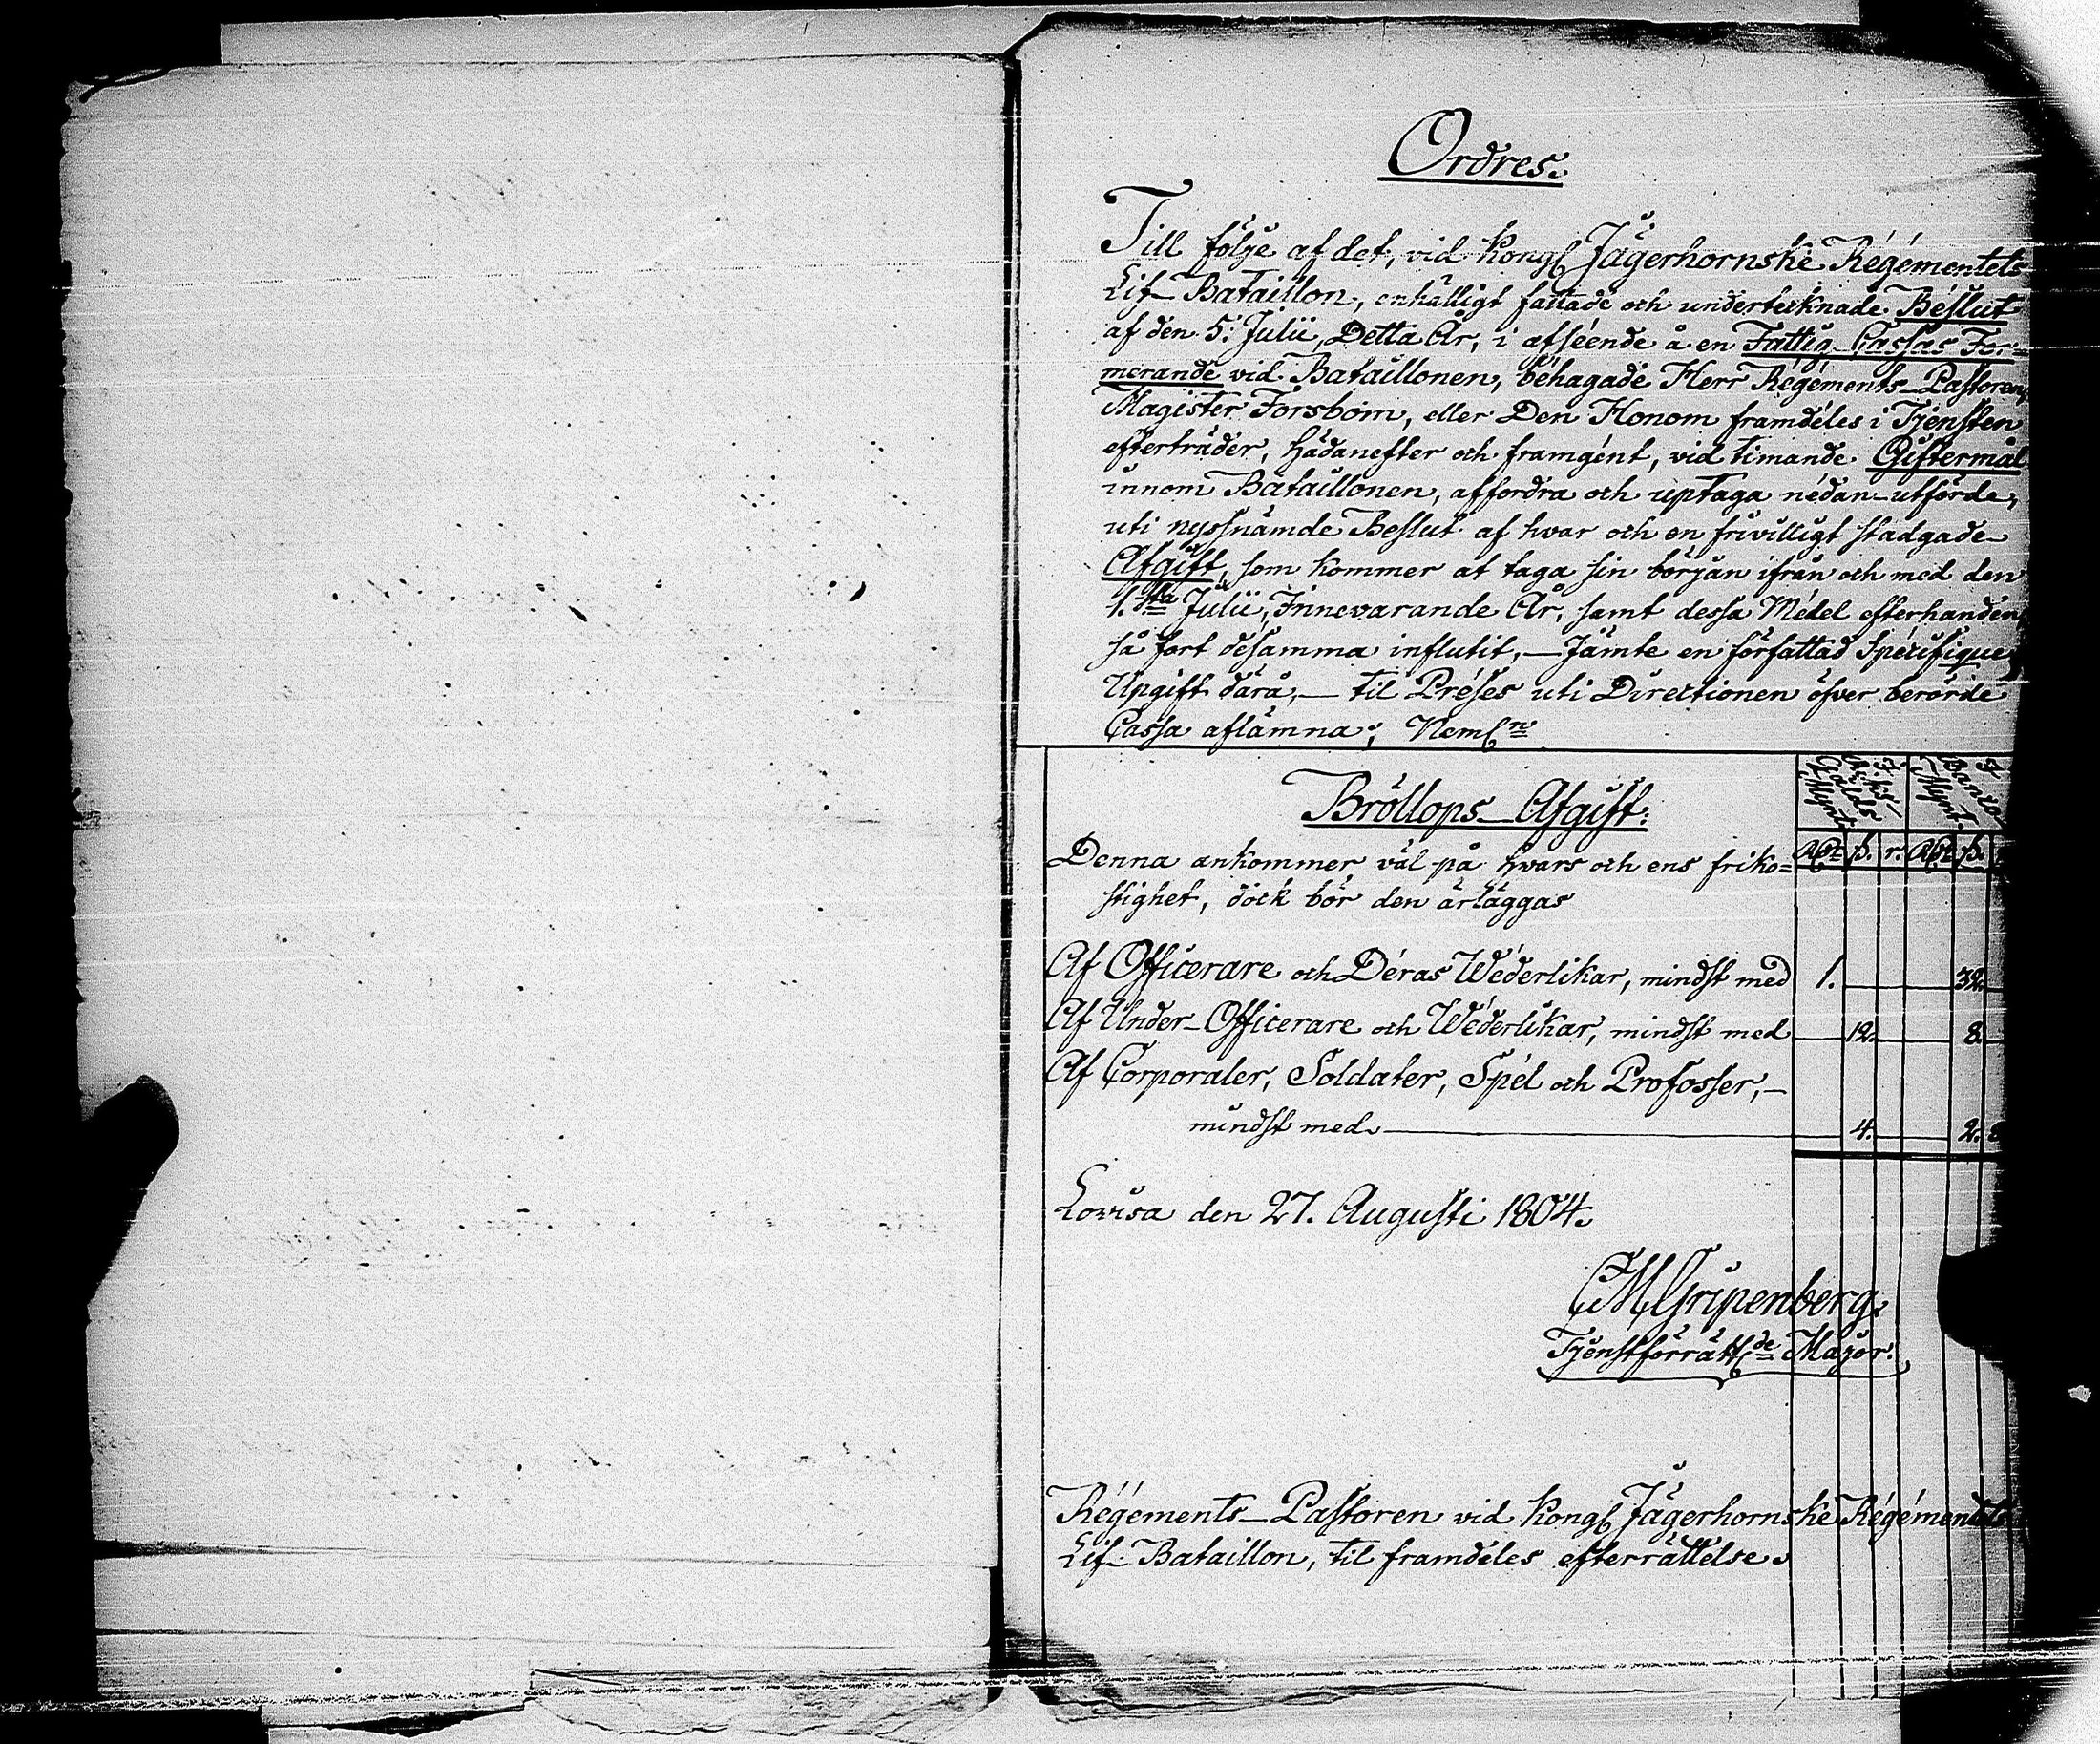 Ordres.
Till följe af det, vid Kongl Jägerhornske Régémentets
Lif-Bataillon, enhälligt fattade och undertecknade Béslut
af den 5: Julii, Detta År, i afséende å en Fattig-Cassas For=
merande vid Bataillonen, béhagade Herr Régéments-Pastoren,
Magister Forsbom, eller Den Honom framdéles i Tjensten
efterträder, hädanefter och framgént, vid timande Giftermål
innom Bataillonen, affordra och uptaga nédan-utförde,
uti nyssnämde Beslut af hvar och en frivilligt stadgade
Afgift, som kommer at taga sin början ifrån och med den
1.sta Julii, Innevarande År, samt dessa Médel efterhanden,
så fort désamma influtit, — Jämte en författad Spécifique
Upgift därå, — til Préses uti Directionen öfver berörde
Cassa aflämna; Neml:n
Bröllops-Afgift:
I Riks-
Gälds
Mynt.
I Banco
Mynt.
Rdr ß. r. Rdr ß.
Denna ankommer väl på hvars och ens friko=
stighet, dock bör den ärläggas
Af Officerare och Déras Wéderlikar, mindst med 1. 32.
Af Under-Officerare och Wéderlikar, mindst med 12. 8.
Af Corporaler, Soldater, Spél och Profosser, —
mindst med 4. 2.
Lovisa den 27. Augusti 1804.
CMGripenberg.
Tjenstförrätt:de Major.
Régéments-Pastoren vid Kongl Jägerhornske Régémentets
Lif-Bataillon, til framdéles efterrättelse.